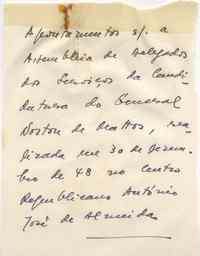 Apontamentos s/. a
Assembleia de Delegados
dos Serviços da Candi-
datura do General
Norton de Mattos, rea-
lizada em 30 de Dezem-
bro de 48 no Centro
Republicano António
José de Almeida